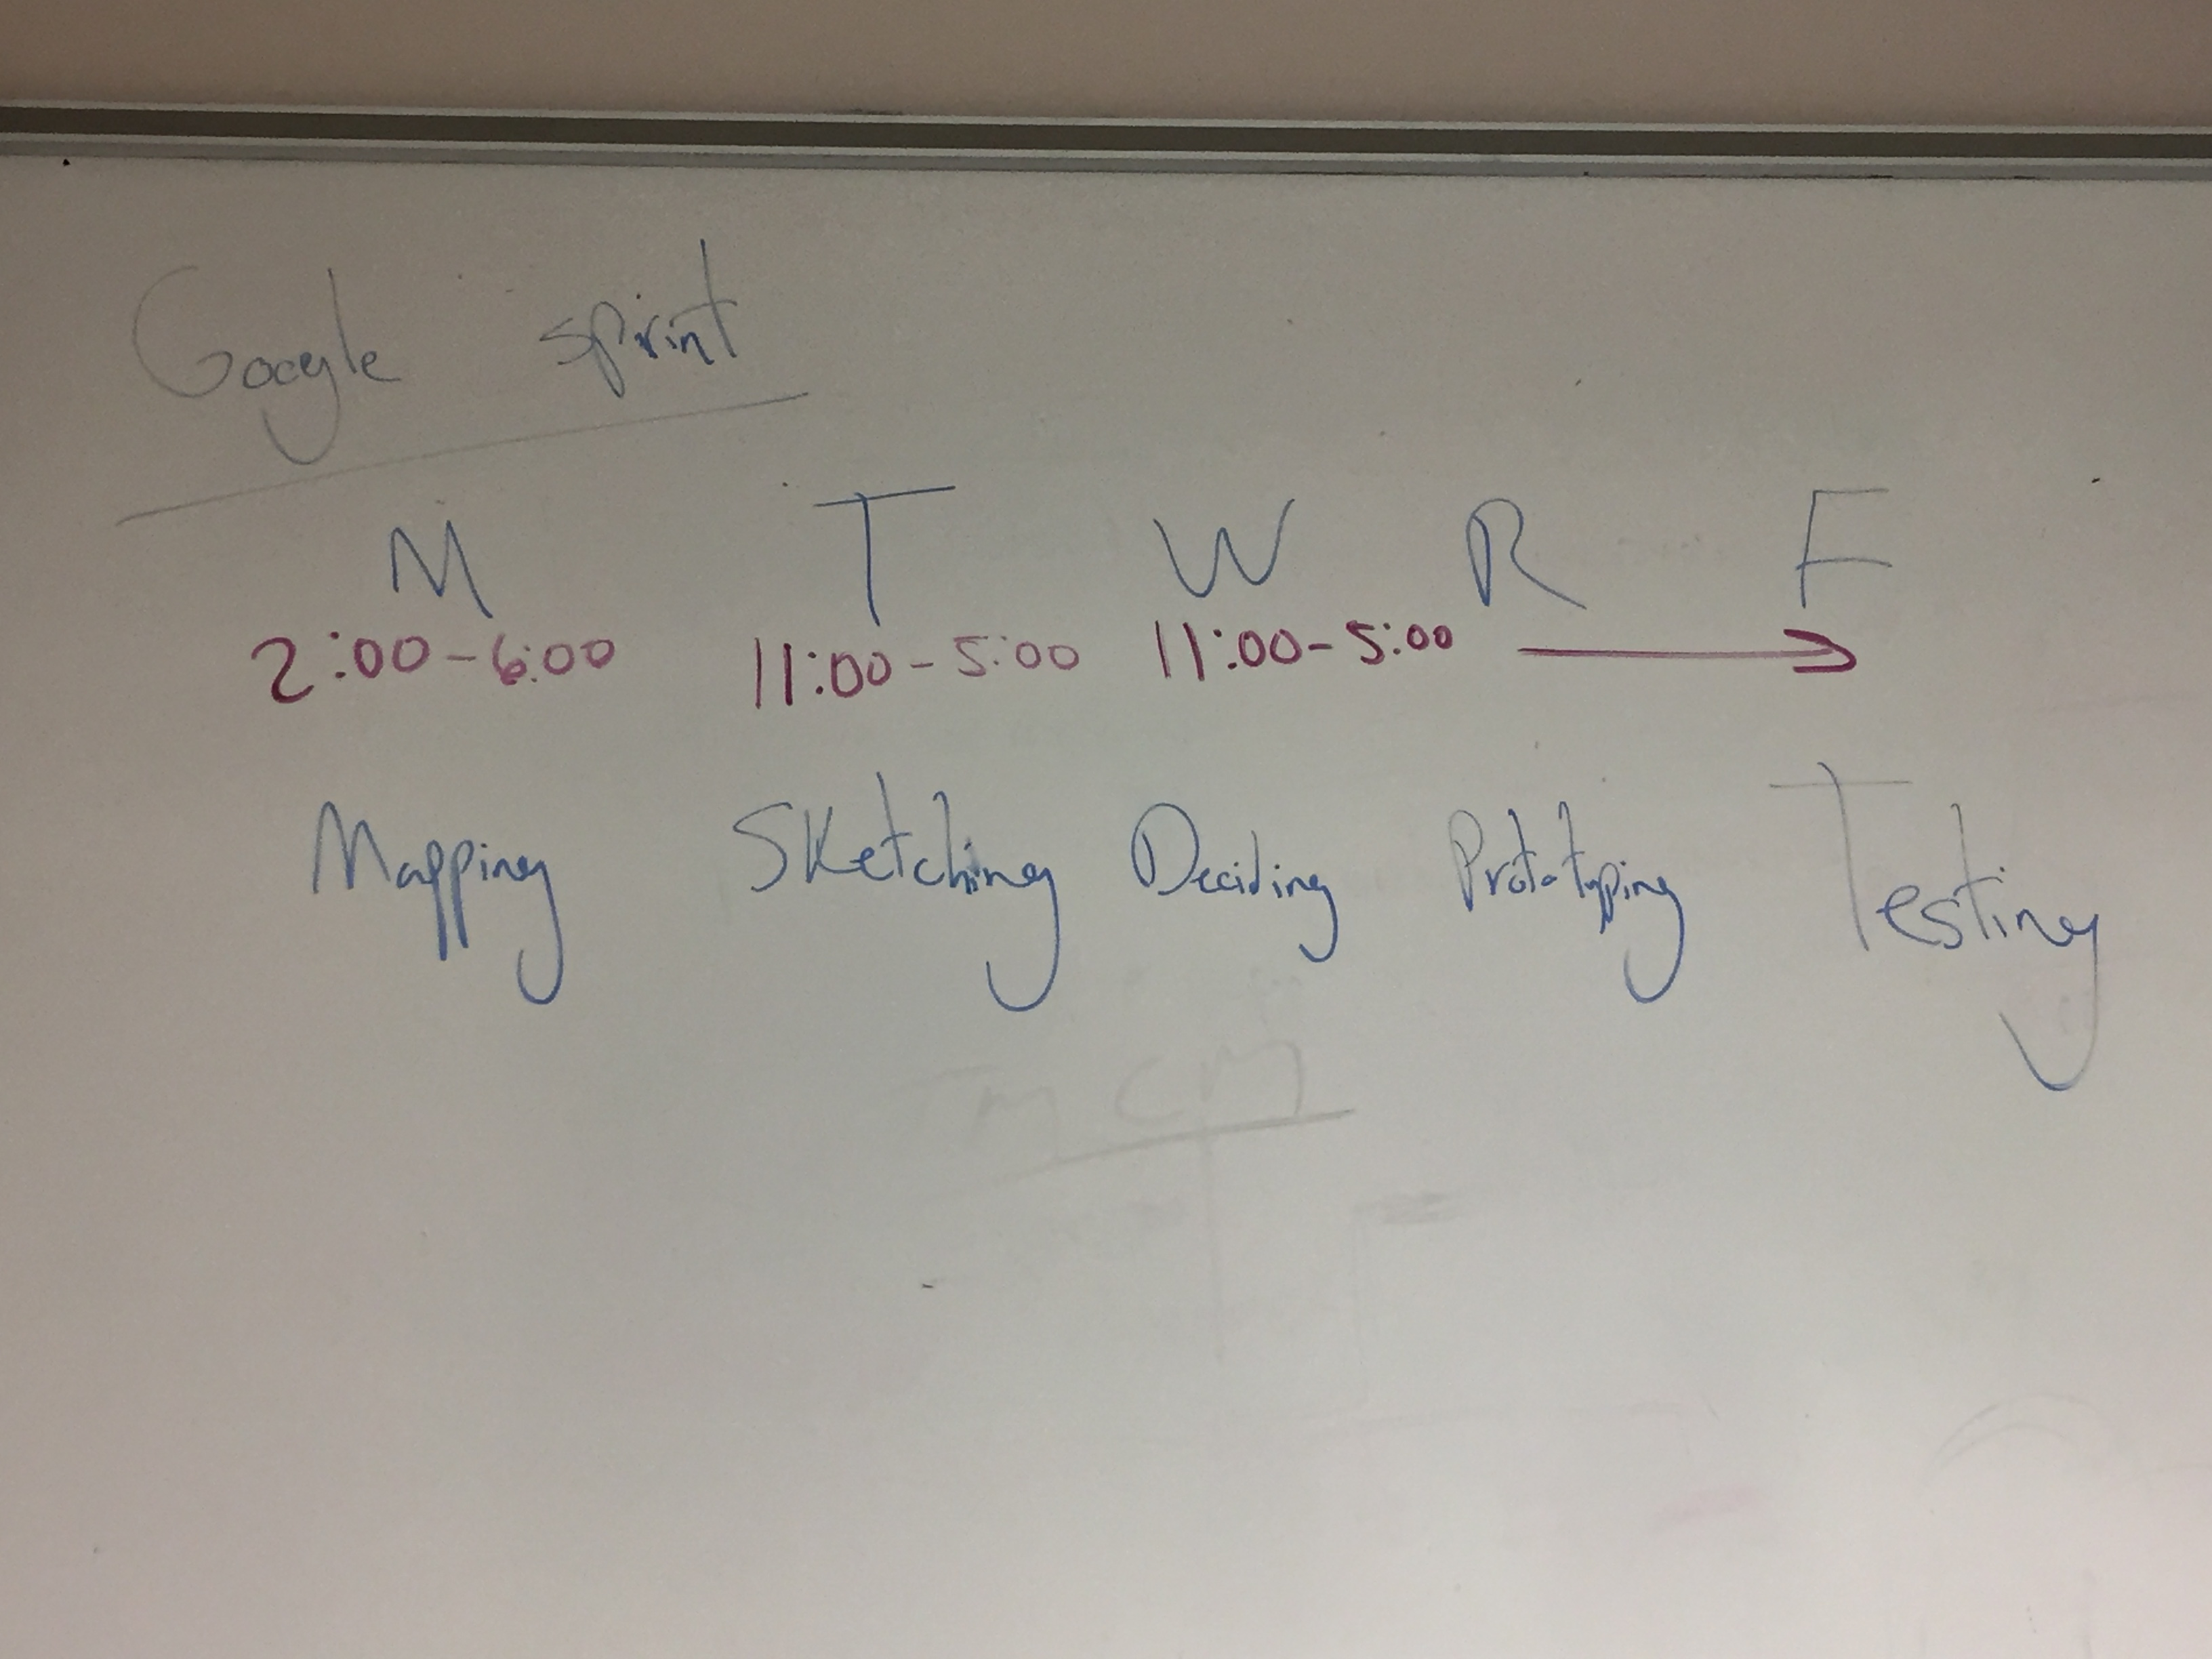 Google sprint
M T W R F
2:00-6:00 11:00-5:00 11:00-5:00 →
Mapping Sketching Deciding Prototyping Testing
TMCM